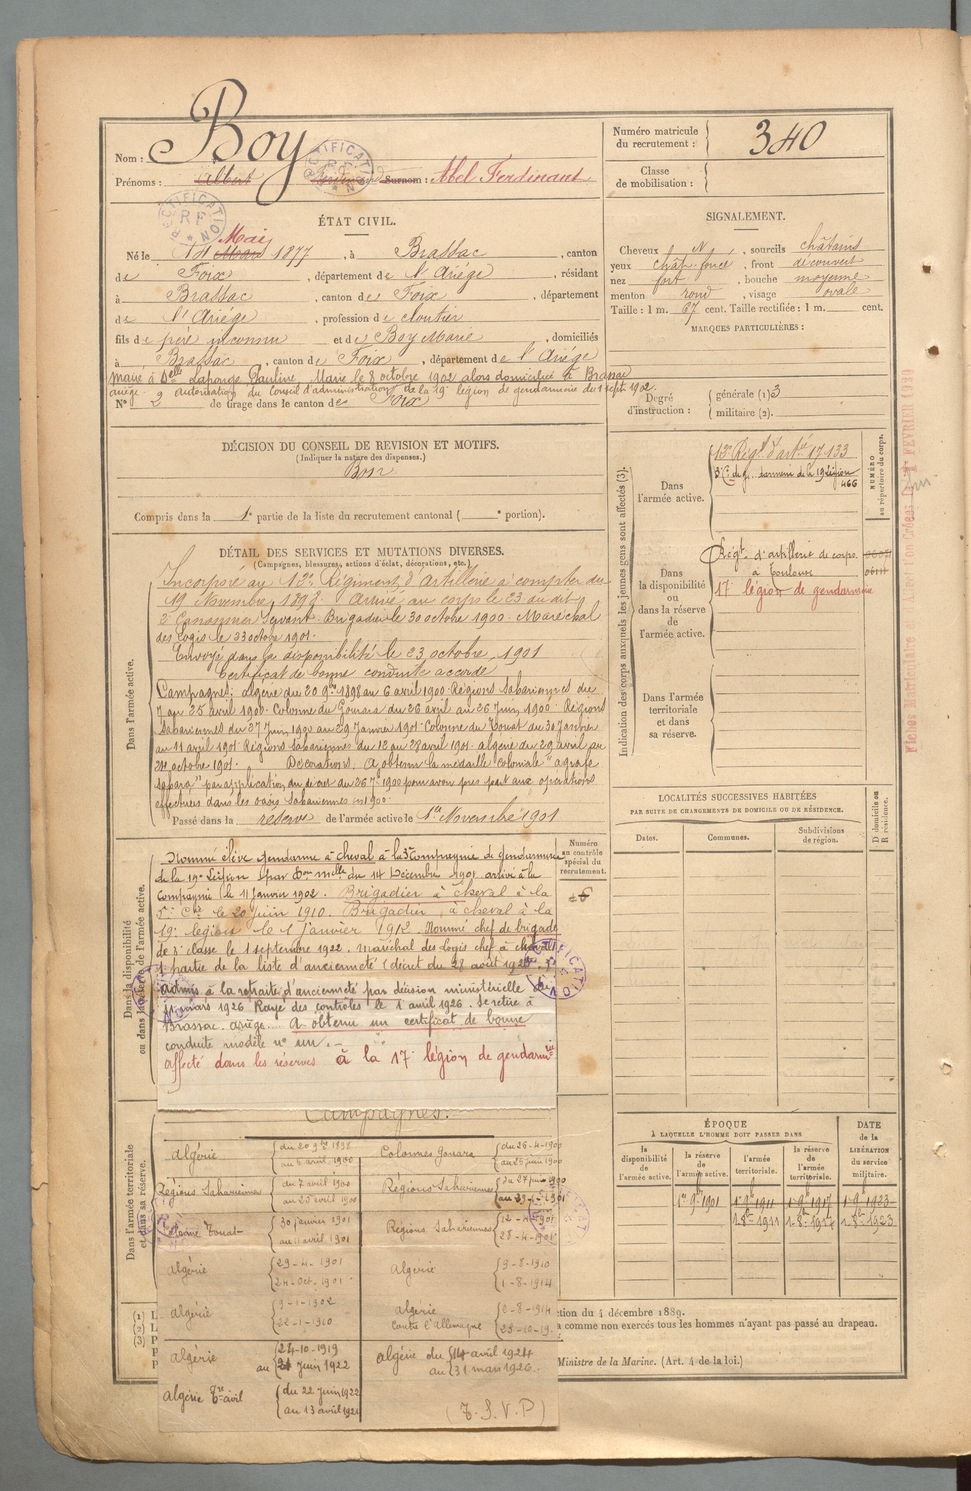 Boy
Nom :
Prénoms : Albert Surnom : Abel Ferdinand
RECTIFICATION
R F
Numéro matricule
du recrutement :
340
Classe
de mobilisation :
ÉTAT CIVIL.
Mai
Né le Mars 1877, à Brassac, canton
de Foix, département de l'Ariège, résidant
à Brassac, canton de Foix, département
de l'Ariège, profession de cloutier
fils de père inconnu et de Boy Marie, domiciliés
à Brassac, canton de Foix, département de l'Ariège
Marié à Delle Lahonge Pauline Marie le 8 octobre 1902 alors domiciliée à Brassac
ariège. autorisation du Conseil d'administration de la 19e légion de gendarmerie du 1 sept. 1902.
N° 2 de tirage dans le canton de Foix
SIGNALEMENT.
Cheveux N, sourcils châtains
yeux chât. foncé, front découvert
nez fort, bouche moyenne
menton rond, visage ovale
Taille : 1 m. 67 cent. Taille rectifiée : 1 m. cent.
MARQUES PARTICULIÈRES :
Degré
d'instruction :
générale (1) 3
militaire (2).
DÉCISION DU CONSEIL DE REVISION ET MOTIFS.
(Indiquer la nature des dispenses.)
Bon
Compris dans la 1e partie de la liste du recrutement cantonal ( e portion).
Indication des corps auxquels les jeunes gens sont affectés (3).
NUMÉRO
au répertoire du corps.
Dans
l'armée active.
13e Régt d'artie 17.133
466
Dans
la disponibilité
ou
dans la réserve
de
l'armée active.
Régt. d'artillerie de corps
à Toulouse
17e légion de gendarmerie
Dans l'armée
territoriale
et dans
sa réserve.
DÉTAIL DES SERVICES ET MUTATIONS DIVERSES.
(Campagnes, blessures, actions d'éclat, décorations, etc.)
Dans l'armée active.
Incorporé au Régiment d'Artillerie à compter du
19 Novembre 1898. Arrivé au corps le 23 du dit
2e Canonnier Servant. Brigadier le 30 octobre 1900. Maréchal
des logis le 23 octobre 1901.
Envoyé dans la disponibilité le 23 octobre 1901
Certificat de bonne conduite accordé
Campagnes : algérie du 20 9bre 1898 au 6 avril 1900. Régions Sahariennes du
7 au 25 avril 1900. Colonne du Gourara du 26 avril au 26 Juin 1900. Régions
Sahariennes du 27 Juin 1900 au 29 Janvier 1901. Colonne du Touat du 30 Janvier
au 11 avril 1901. Régions Sahariennes du 12 au 28 avril 1901. algérie du 29 avril au
24 octobre 1901. Décorations. A obtenu la médaille Coloniale "agrafe
Sahara" par application du décret du 26 7 1900 pour avoir pris part aux opérations
effectuées dans les oasis Sahariennes en 1900.
Passé dans la réserve de l'armée active le 1er Novembre 1901
LOCALITÉS SUCCESSIVES HABITÉES
PAR SUITE DE CHANGEMENTS DE DOMICILE OU DE RÉSIDENCE.
Dates.
Communes.
Subdivisions
de région.
D domicile ou
R résidence.
Numéro
au contrôle
spécial du
recrutement.
Dans la disponibilité
ou dans la réserve de l'armée active.
Nommé élève gendarme à cheval à la Compagnie de gendarmerie
de la 19e Légion par Don mlle du 14 Décembre 1901 arrivé à la
Compagnie le 11 Janvier 1902. Brigadier à cheval à la
Cie le 20 juin 1910. Brigadier à cheval à la
19e légion le 1 janvier 1912. Nommé chef de brigade
de 3e classe le 1 septembre 1922. Maréchal des logis chef à cheval
1e partie de la liste d'ancienneté (décret du 28 août 192
admis à la retraite d'ancienneté par décision ministérielle du
11 mars 1926. Rayé des contrôles le 1 avril 1926. Se retire à
Brassac. ariège. A obtenu un certificat de bonne
conduite modèle n° un.
affecté dans les réserves à la 17e légion de gendarmie
Dans l'armée territoriale
et dans sa réserve.
Campagnes.
Algérie du 20 9bre 1898 au 6 avril 1900
Colonnes Gourara du 26-4-1900 au 26 juin 1900
Régions Sahariennes du 7 avril 1900 au 25 avril 1900
Régions Sahariennes du 27 juin 1900 au 29-1-1901
Colonne Touat 30 janvier 1901 au 11 avril 1901
Régions Sahariennes 12-4-1901 28-4-1901
algérie 29-4-1901 24-Oct. 1901
Algérie 9-8-1910 1-8-1914
algérie 9-1-1902 22-1-1910
algérie contre l'Allemagne 2-8-1914 23-10-19
algérie 24-10-1919 au 21 juin 1922
algérie du 14 avril 1924 au 31 mars 1926.
algérie Tre civil du 22 juin 1922 au 13 avril 1924
(T.S.V.P)
ÉPOQUE
À LAQUELLE L'HOMME DOIT PASSER DANS
DATE
de la
LIBÉRATION
du service
militaire.
la
disponibilité
de
l'armée active.
la
réserve de
l'armée active.
l'armée
territoriale.
la réserve
de
l'armée
territoriale.
1er 9bre 1901
1er 9bre 1911
1er 9bre 1917
1er 9bre 1923
1-8bre 1911
1-8bre 1917
1-8bre 1923
(1) L
(2) L
(3) P
P
P
ction du 4 décembre 1889.
a comme non exercés tous les hommes n'ayant pas passé au drapeau.
Ministre de la Marine. (Art. 4 de la loi.)